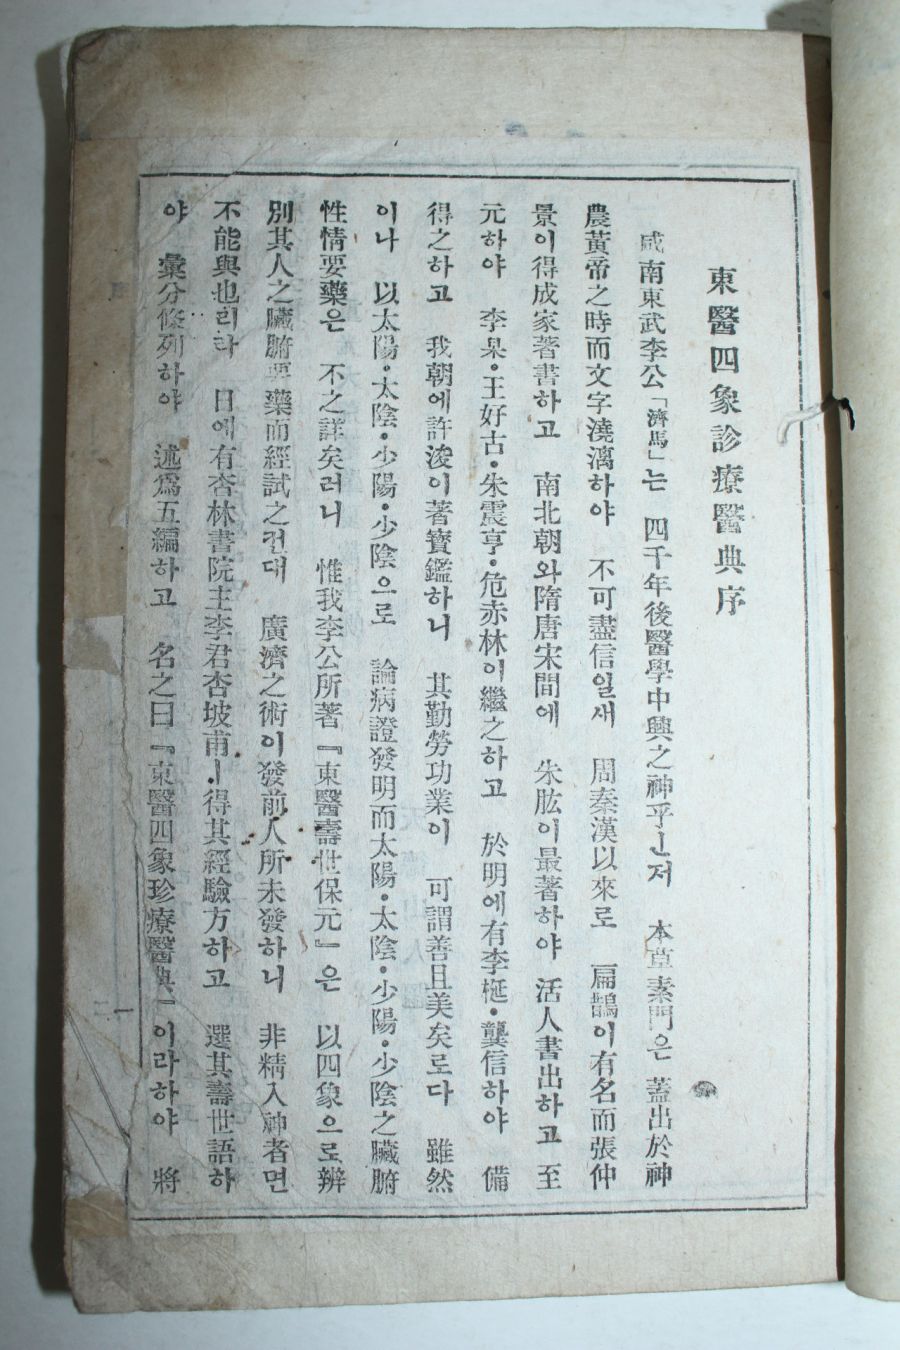 東醫四象診療醫典序
咸南東武李公「濟馬」는 四千年後醫學中興之神乎ᅟᅵᆫ저 本草素問은 蓋出於神
農黃帝之時而文字澆漓하야 不可盡信일새 周秦漢以來로 扁鵲이有名而張仲
景이得成家著書하고 南北朝와隋唐宋間에 朱肱이最著하야 活人書出하고 至
元하야 李杲•王好古•朱震亨•危亦林이繼之하고 於明에有李梴•龔信하야 備
得之하고 我朝에許浚이著寶鑑하니 其勤勞功業이 可謂善且美矣로다 雖然
이나 以太陽•太陰•少陽•少陰으로 論病證發明而太陽•太陰•少陽•少陰之臟腑
性情要藥은 不之詳矣러니 惟我李公所著『東醫壽世保元』은 以四象으로辨
別其人之臟腑要藥而經試之컨대 廣濟之術이發前人所未發하니 非精入神者면
不能與也리라 日에有杏林書院主李君杏坡甫ㅣ得其經驗方하고 選其壽世語하
야 彙分條列하야 述爲五編하고 名之曰『東醫四象珍療醫典』이라하야 將
一